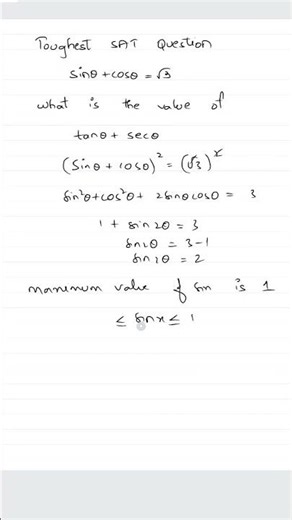 Toughest SAT Question
sinθ + cosθ = √3
what is the value of
tanθ + secθ
(sinθ + cosθ)² = (√3)²
sin²θ + cos²θ + 2sinθcosθ = 3
1 + sin2θ = 3
sin2θ = 3-1
sin2θ = 2
maximum value of sin is 1
≤ sinx ≤ 1